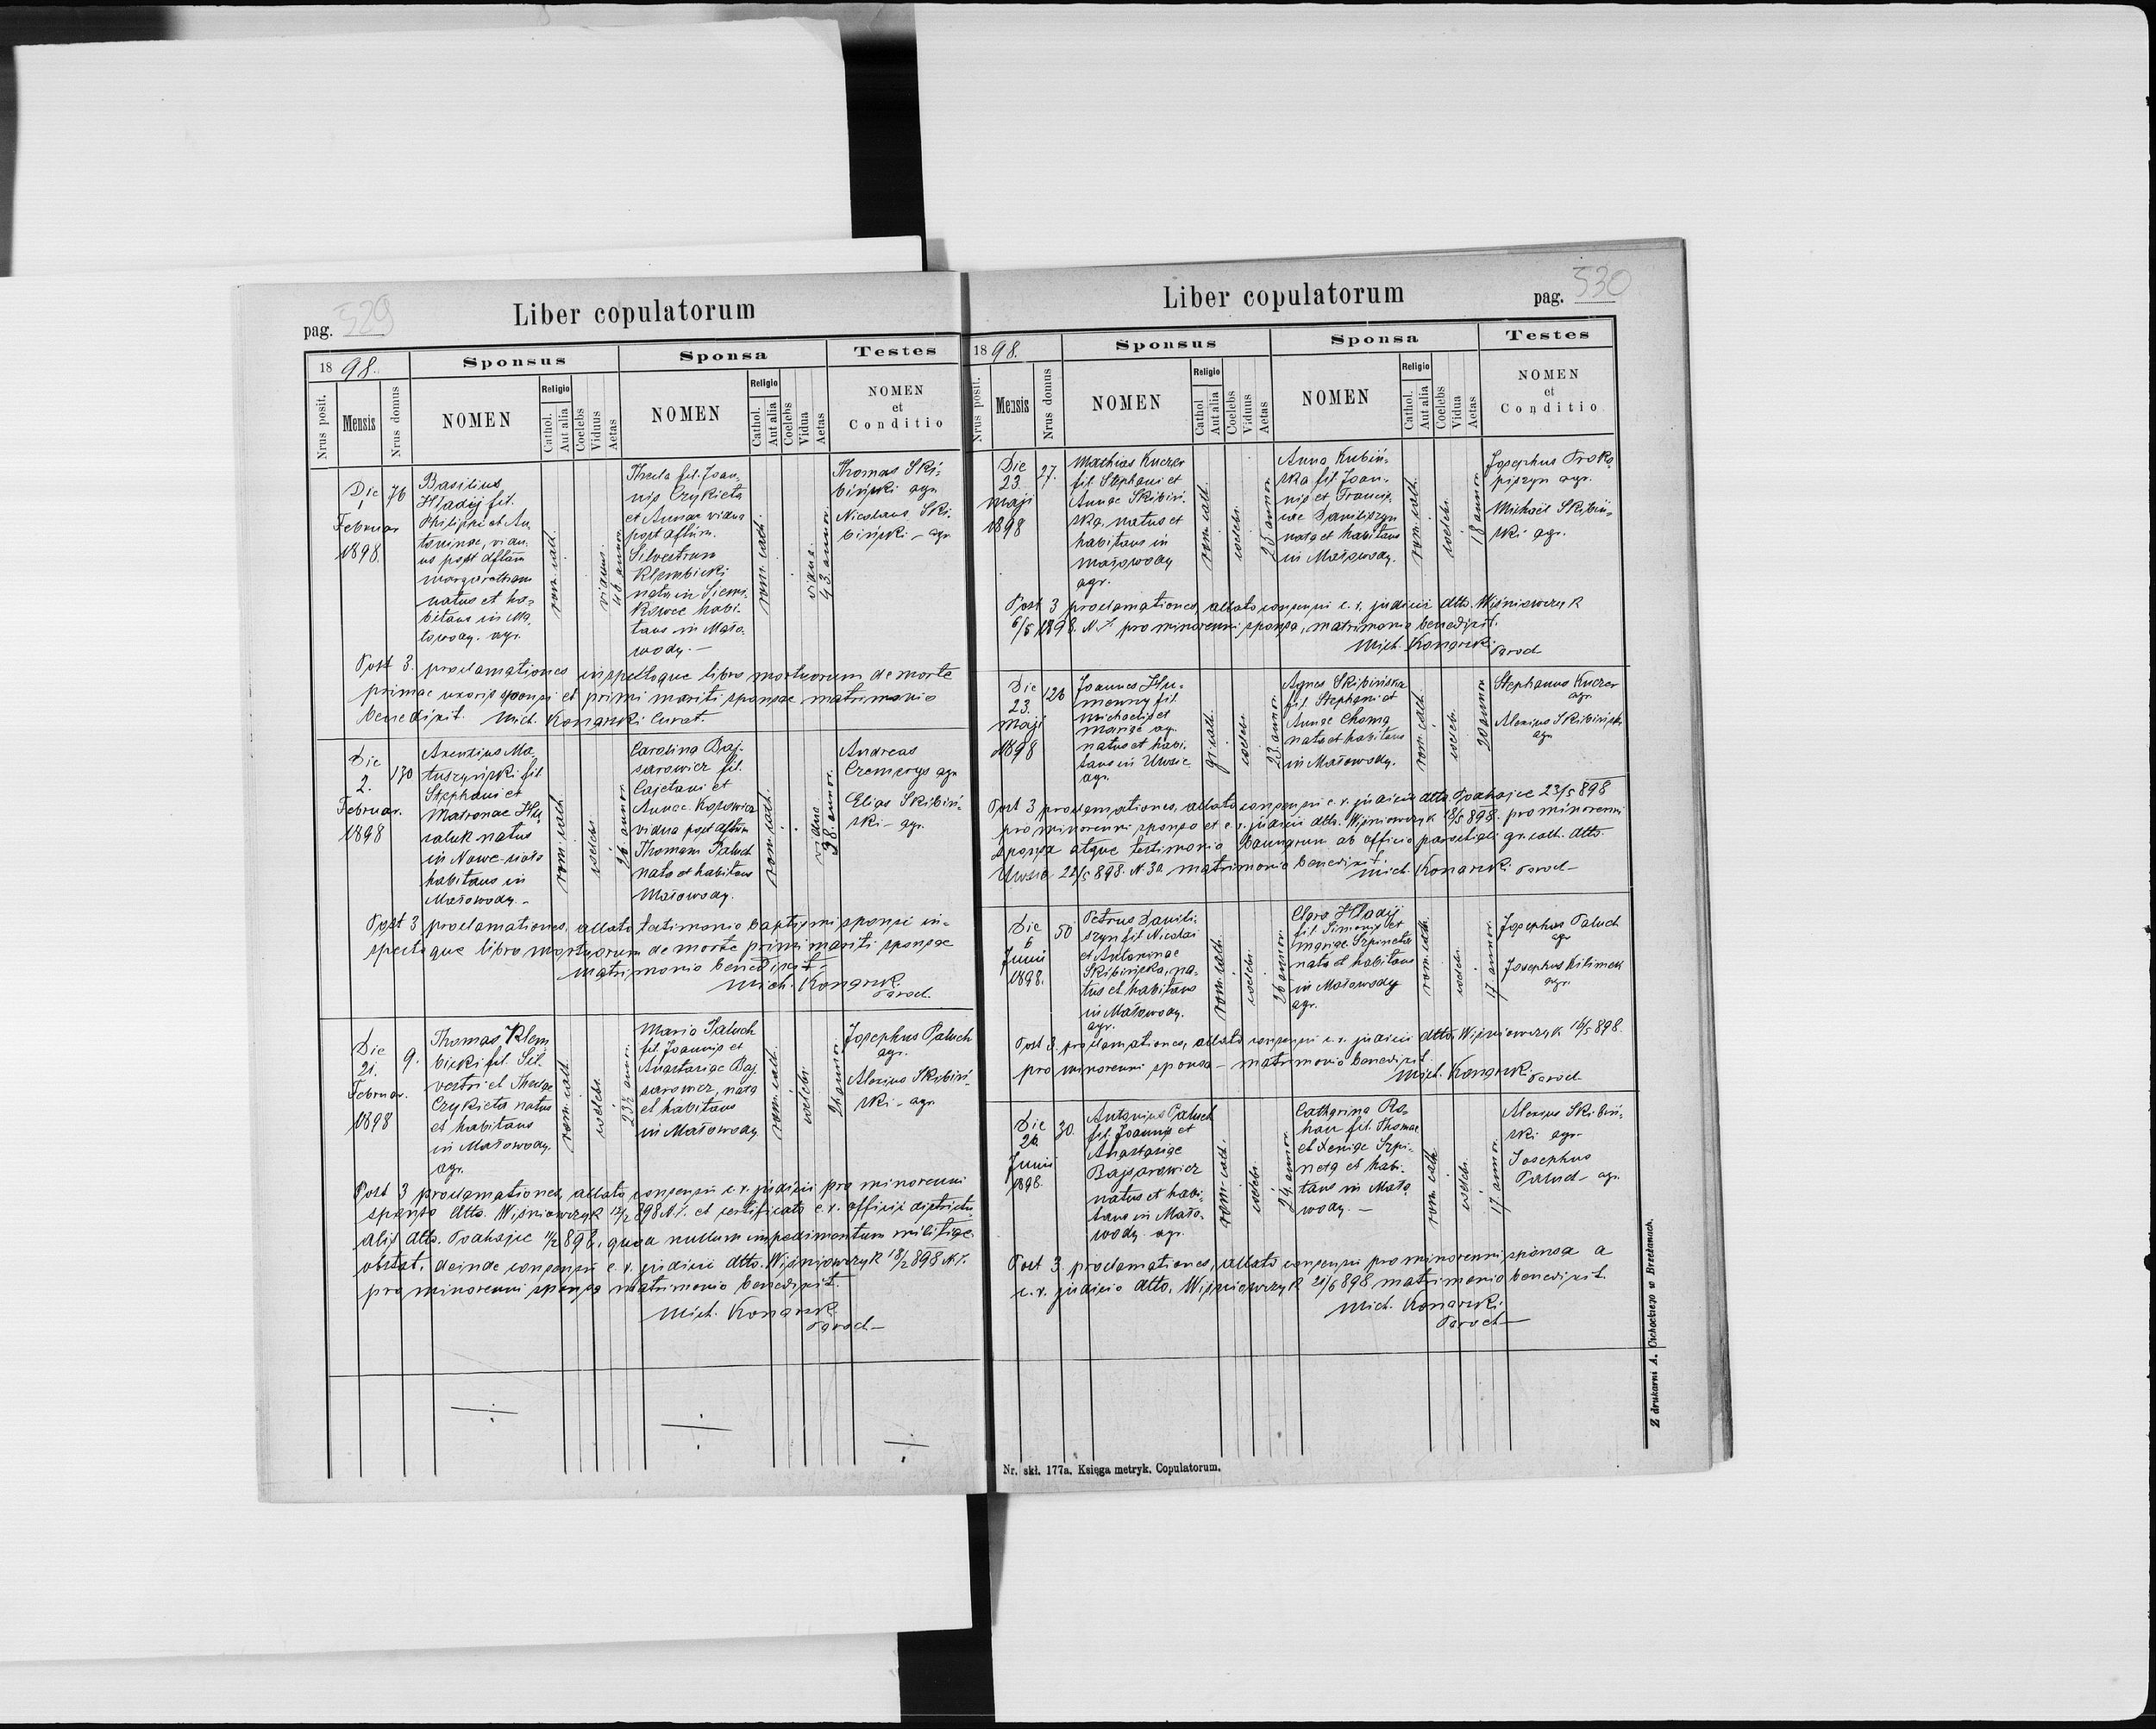 pag. 529
Liber copulatorum
18 98.
Sponsus
Sponsa
Testes
Nrus posit.
Mensis
Nrus domus
NOMEN
Religio
Cathol.
Aut alia
Coelebs
Viduus
Aetas
NOMEN
Religio
Cathol.
Aut alia
Coelebs
Vidua
Aetas
NOMEN
et
Conditio
Die
1
Februar
1898.
76
Basilius
Hladij fil.
Philippi et An
toninae, vidu,
us post dftam
Margaretham
natus et ha-
bitans in Ma,
lowody. agr.
rom. cath.
viduus.
46 annor.
Thecla fil. Joan-
nis Czykieta
et Annae vidua
post dftum.
Silvestrum
Klembicki
nata in Siemi-
kowce habi-
tans in Mało-
wody. —
rom. cath.
vidua.
43. annor.
Thomas Ski-
biński agr.
Nicolaus Ski-
biński - agr.
Post 3. proclamationes inspectoque libro mortuorum de morte
primae uxoris sponsi et primi mariti sponsae matrimonio
benedixit. Mich. Konarski Curat.
Die
2.
Februar.
1898
130
Auxentius Ma
tuszyński fil
Stephani et
Matronae Hu
caluk natus
in Nowe-siolo
habitans in
Małowody.
rom. cath.
coelebs.
26 annor.
Carolina Baj-
sarowicz fil.
Cajetani et
Annae Kossowicz
vidua post dftum
Thomam Paluch
nata et habitans
Małowody.
rom. cath.
vidua
38. annor.
Andreas
Czemerys agr
Elias Skibiń-
ski - agr.
Post 3 proclamationes, allato testimonio baptismi sponsi in-
spectoque libro mortuorum de morte primi mariti sponsae
matrimonio benedixit.
Mich. Konarski
Paroch.
Die
21.
Februar.
1898
9.
Thomas Klem
bicki fil. Sil-
vestri et Theclae
Czykieta natus
et habitans
in Małowody.
agr.
rom. cath.
coelebs.
23½ annor.
Maria Paluch
fil. Joannis et
Anastasiae Baj
sarowicz, nata
et habitans
in Małowody
rom. cath.
coelebs.
21 annor.
Josephus Paluch
agr.
Alexius Skibiń-
ski - agr.
Post 3 proclamationes, allato consensu c. r. judicii pro minorenni
sponso dtto. Wiśniowczyk 17/2 898 N 1. et certificato c. r. officii districtu-
alis dtto. Podhajce 11/2 898, quod nullum impedimentum militiae
obstat, deinde consensu c. r. judicii dtto. Wiśniowczyk 18/2 898 N 1.
pro minorenni sponsa matrimonio benedixit.
Mich. Konarski
Paroch—
pag. 530
Liber copulatorum
18 98.
Sponsus
Sponsa
Testes
Nrus posit.
Mensis
Nrus domus
NOMEN
Religio
Cathol
Aut alia
Coelebs
Viduus
Aetas
NOMEN
Religio
Cathol.
Aut alia
Coelebs
Vidua
Aetas
NOMEN
et
Conditio
Die
23.
Maji
1898
27.
Mathias Kuczer
fil. Stephani et
Annae Skibiń-
ska, natus et
habitans in
Małowody
agr.
rom. cath.
coelebs.
25 annor.
Anna Kubiń-
ska fil Joan-
nis et Francis-
cae Daniliszyn
nata et habitans
in Małowody.
rom. cath.
coelebs.
18 annor.
Josephus Proko
piszyn agr.
Michaël Skibiń-
ski agr.
Post 3 proclamationes, allato consensu c. r. judicii dtto. Wiśniowczyk
6/5 1898. N 1. pro minorenni sponsa, matrimonio benedixit.
Mich. Konarski Paroch
Die
23.
Maji
1898
126
Joannes Hu-
menny fil.
Michaelis et
Mariae agr.
natus et habi-
tans in Uwsie
agr.
gr. cath.
coelebs
23 annor.
Agnes Skibińska
fil. Stephani et
Annae Choma
nata et habitans
in Małowody.
rom. cath.
coelebs.
20 annor
Stephanus Kuczer
agr.
Alexius Skibiński
agr
Post 3 proclamationes, allato consensu c. r. judicii dtto. Podhajce 23/5 898
pro minorenni sponso et c. r. judicii dtto. Wiśniowczyk 18/5 898. pro minorenni
sponsa atque testimonio Bannorum ab officio parochiali gr. cath. dtto.
Uwsie 22/5 898. N 30 matrimonio benedixit.
Mich. Konarski Paroch—
Die
6
Junii
1898.
50
Petrus Danili-
szyn fil Nicolai
et Antoninae
Skibińska, na-
tus et habitans
in Małowody.
agr.
rom. cath.
coelebs.
26 annor.
Clara Hladij
fil. Simonis et
Mariae Szpineta
nata et habitans
in Małowody
agr.
rom. cath.
coelebs.
17 annor.
Josephus Paluch
agr
Josephus Kilimek
agr.
Post 3. proclamationes, allato consensu c. r. judicii dtto. Wiśniowczyk 16/5 898.
pro minorenni sponsa - matrimonio benedixit.
Mich. Konarski Paroch
Die
26.
Junii
1898.
30.
Antonius Paluch
fil. Joannis et
Anastasiae
Bajsarowicz
natus et habi-
tans in Mało-
wody. agr.
rom. cath.
coelebs.
24. annor.
Catharina Ro-
hacz fil. Thomae
et Xeniae Szpi-
neta et habi-
tans in Mało
wody. —
rom. cath.
coelebs.
17 annor.
Alexius Skibiń-
ski agr.
Josephus
Paluch - agr.
Post 3. proclamationes, allato consensu pro minorenni sponsa a
c. r. judicio dtto. Wiśniowczyk 21/6 898 matrimonio benedixit.
Mich. Konarski
Paroch—
Nr. skł. 177a. Księga metryk. Copulatorum.
Z drukarni A. Cichockiego w Brzeżanach.